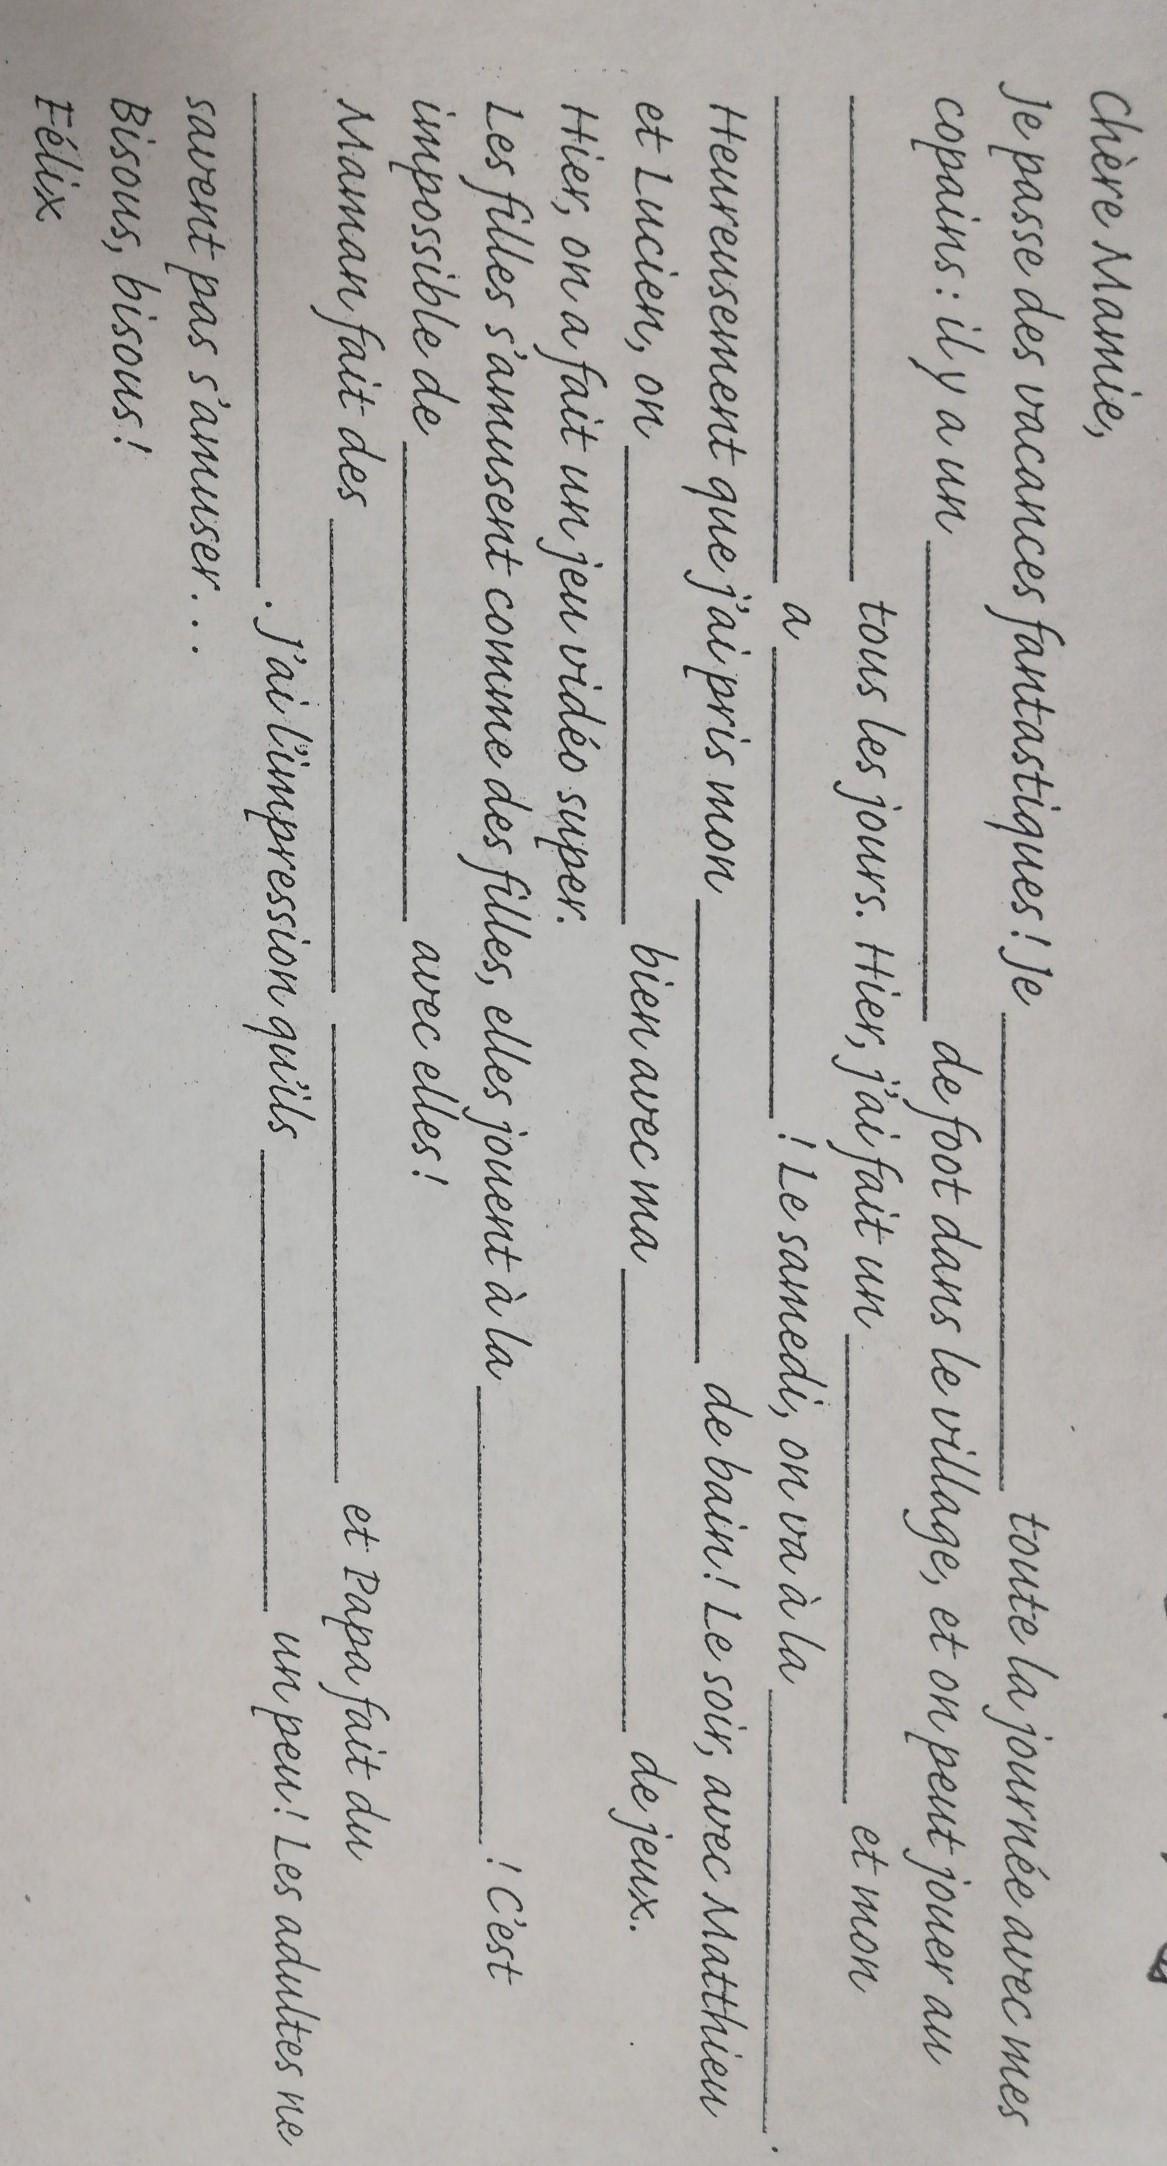 Chère Mamie,
Je passe des vacances fantastiques ! Je ____________ toute la journée avec mes
copains : il y a un ____________ de foot dans le village, et on peut jouer au
____________ tous les jours. Hier, j'ai fait un ____________ et mon
____________ a ____________ ! Le samedi, on va à la ____________.
Heureusement que j'ai pris mon ____________ de bain ! Le soir, avec Matthieu
et Lucien, on ____________ bien avec ma ____________ de jeux.
Hier, on a fait un jeu vidéo super.
Les filles s'amusent comme des filles, elles jouent à la ____________ ! C'est
impossible de ____________ avec elles !
Maman fait des ____________ ____________ et Papa fait du
____________. J'ai l'impression qu'ils ____________ un peu ! Les adultes ne
savent pas s'amuser...
Bisous, bisous !
Félix